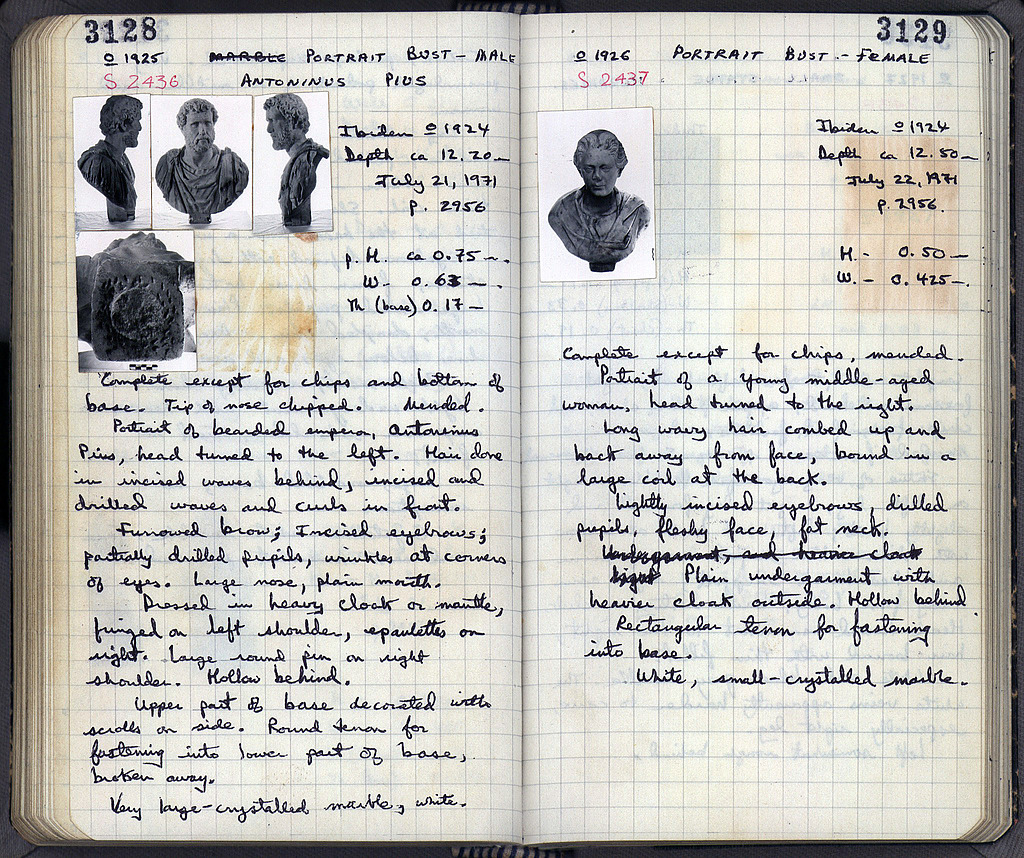 3128
O 1925 MARBLE PORTRAIT BUST - MALE
S 2436 ANTONINUS PIUS
Ibidem O 1924
Depth ca 12.20 —
July 21, 1971
p. 2956
p. H. ca 0.75 —.
W - 0.63 —.
Th (base) 0.17 —
Complete except for chips and bottom of
base. Tip of nose chipped. Mended.
Portrait of bearded emperor, Antoninus
Pius, head turned to the left. Hair done
in incised waves behind, incised and
drilled waves and curls in front.
Furrowed brow; Incised eyebrows;
partially drilled pupils, wrinkles at corners
of eyes. Large nose, plain mouth.
Dressed in heavy cloak or mantle,
fringed on left shoulder, epaulettes on
right. Large round pin on right
shoulder. Hollow behind.
Upper part of base decorated with
scrolls on side. Round tenon for
fastening into lower part of base,
broken away.
Very large-crystalled marble, white.
3129
O 1926 PORTRAIT BUST - FEMALE
S 2437
Ibidem O 1924
Depth ca 12.50 —
July 22, 1971
p. 2956.
H. - 0.50 —
W. - 0.425 —.
Complete except for chips, mended.
Portrait of a young middle-aged
woman, head turned to the right.
Long wavy hair combed up and
back away from face, bound in a
large coil at the back.
Lightly incised eyebrows, drilled
pupils, fleshy face, fat neck.
Undergarment, and heavier cloak
light Plain undergarment with
heavier cloak outside. Hollow behind
Rectangular tenon for fastening
into base.
White, small-crystalled marble.